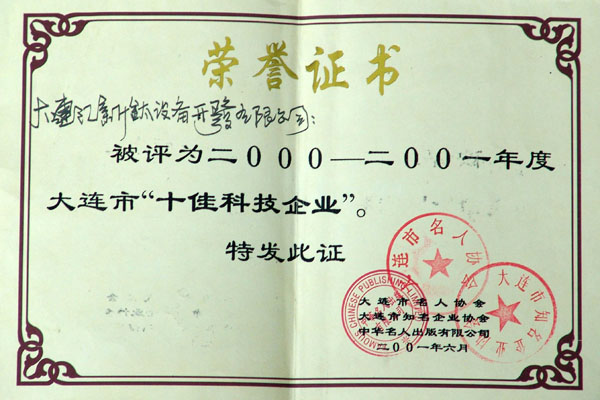 荣誉证书
大連汇新钛设备开發有限公司:
被评为二000—二00一年度
大连市“十佳科技企业”。
特发此证
大连市名人协会
大连市知名企业协会
中华名人出版有限公司
二00一年六月
大连市名人协会
大连市知名企业协会